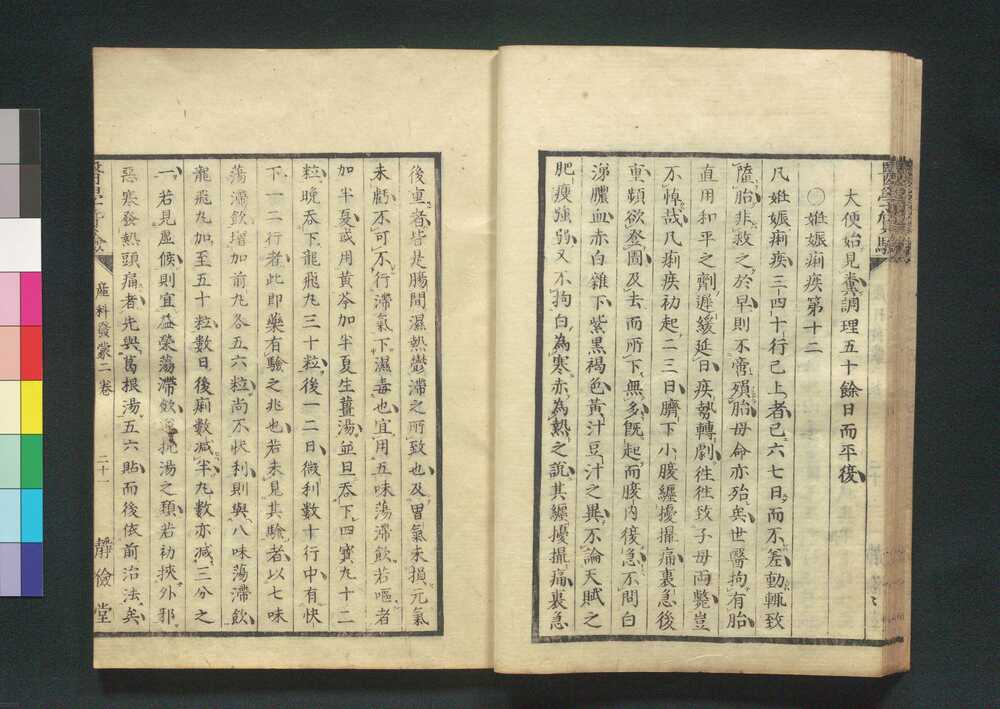 大便始見糞調理五十餘日而平復
〇姙娠痢疾第十二
凡姙娠痢疾三四十行已上者已六七日而不差動輒致
墮胎非救之於早則不啻殞胎母命亦殆矣世醫拘有胎
直用和平之劑遲緩延日疾勢轉劇往往致子母両斃豈
不悼哉凡痢疾初起二三日臍下小腹纏擾撮痛裏急後
重頻欲登圊及去而所下無多既起而腹内復急不問白
涕膿血赤白雜下紫黒褐色黃汁豆汁之異不論天賦之
肥瘦強弱又不拘白為寒赤為熱之說其纏擾撮痛裏急
後重者皆是腸間濕熱鬱滞之所致也及胃氣未損元氣
未虧不可不行滞氣下濕毒也宜用五味蕩滞飲若嘔者
加半夏或用黃芩加半夏生薑湯並旦吞下四寶丸十二
粒晩吞下龍飛丸三十粒後一二日微利數十行中有快
下一二行者此即藥有驗之兆也若未見其驗者以七味
蕩滞飲増加前丸各五六粒尚不快利則與八味蕩滞飲
龍飛丸加至五十粒數日後痢數减半丸數亦减三分之
一若見虛候則宜益榮蕩滞飲湯之類若初挾外邪
惡寒發熱頭痛者先與葛根湯五六貼而後依前治法矣
產科發蒙二卷
二十一
靜儉堂